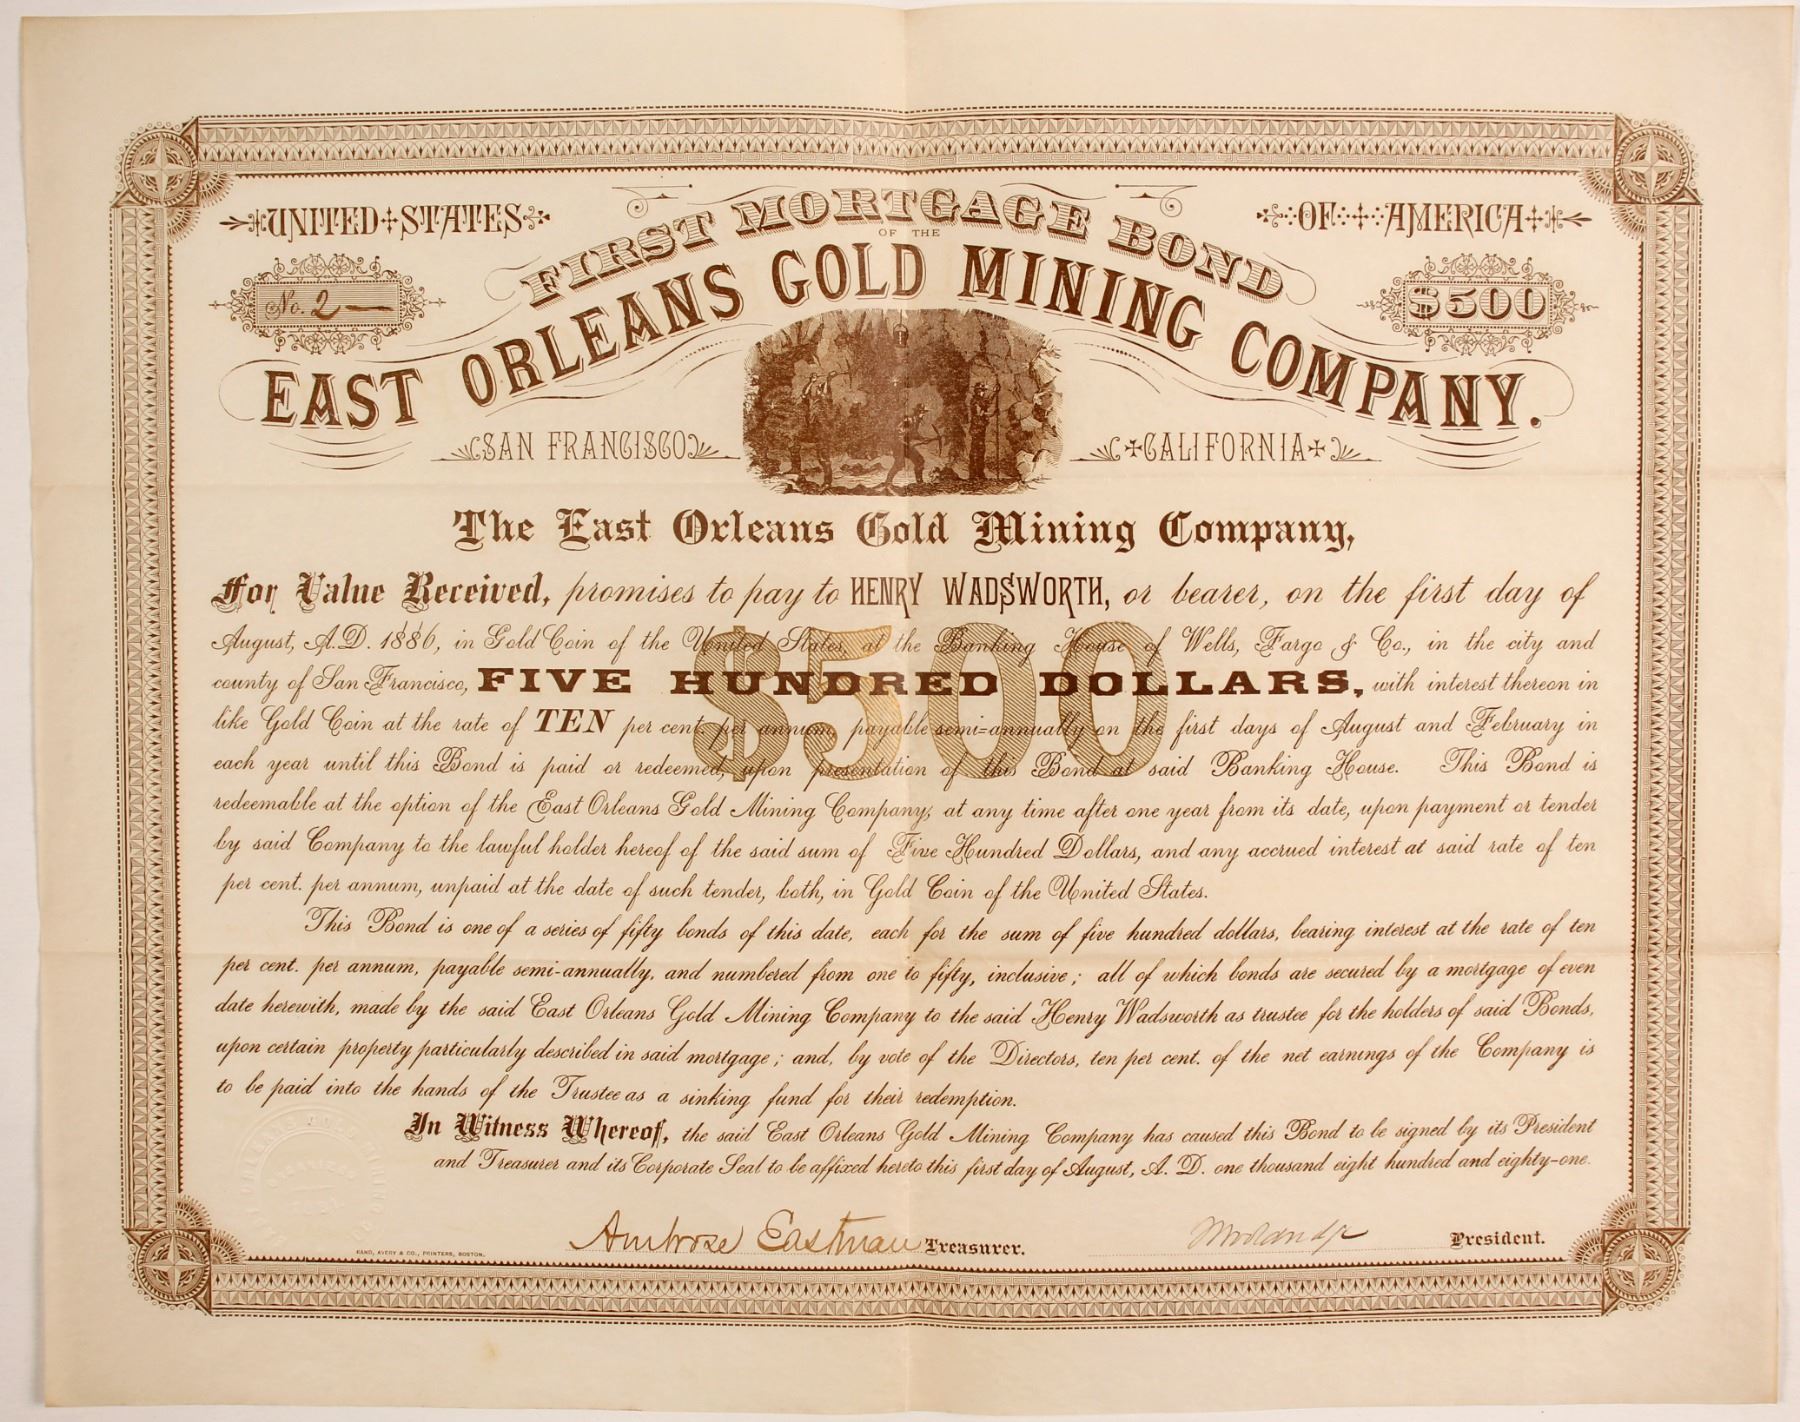 UNITED STATES
OF AMERICA
FIRST MORTGAGE BOND
OF THE
EAST ORLEANS GOLD MINING COMPANY.
No. 2
$500
SAN FRANCISCO
CALIFORNIA
The East Orleans Gold Mining Company,
For Value Received, promises to pay to HENRY WADSWORTH, or bearer, on the first day of
August, A.D. 1886, in Gold Coin of the United States, at the Banking House of Wells, Fargo & Co., in the city and
county of San Francisco, FIVE HUNDRED DOLLARS, with interest thereon in
like Gold Coin at the rate of TEN per cent. per annum, payable semi-annually on the first days of August and February in
each year until this Bond is paid or redeemed, upon presentation of this Bond at said Banking House. This Bond is
redeemable at the option of the East Orleans Gold Mining Company, at any time after one year from its date, upon payment or tender
by said Company to the lawful holder hereof of the said sum of Five Hundred Dollars, and any accrued interest at said rate of ten
per cent. per annum, unpaid at the date of such tender, both, in Gold Coin of the United States.
$500
This Bond is one of a series of fifty bonds of this date, each for the sum of five hundred dollars, bearing interest at the rate of ten
per cent. per annum, payable semi-annually, and numbered from one to fifty, inclusive; all of which bonds are secured by a mortgage of even
date herewith, made by the said East Orleans Gold Mining Company to the said Henry Wadsworth as trustee for the holders of said Bonds,
upon certain property particularly described in said mortgage; and, by vote of the Directors, ten per cent. of the net earnings of the Company is
to be paid into the hands of the Trustee as a sinking fund for their redemption.
In Witness Whereof, the said East Orleans Gold Mining Company has caused this Bond to be signed by its President
and Treasurer and its Corporate Seal to be affixed hereto this first day of August, A. D. one thousand eight hundred and eighty-one.
Ambrose Eastman Treasurer.
President.
RAND, AVERY & CO., PRINTERS, BOSTON.